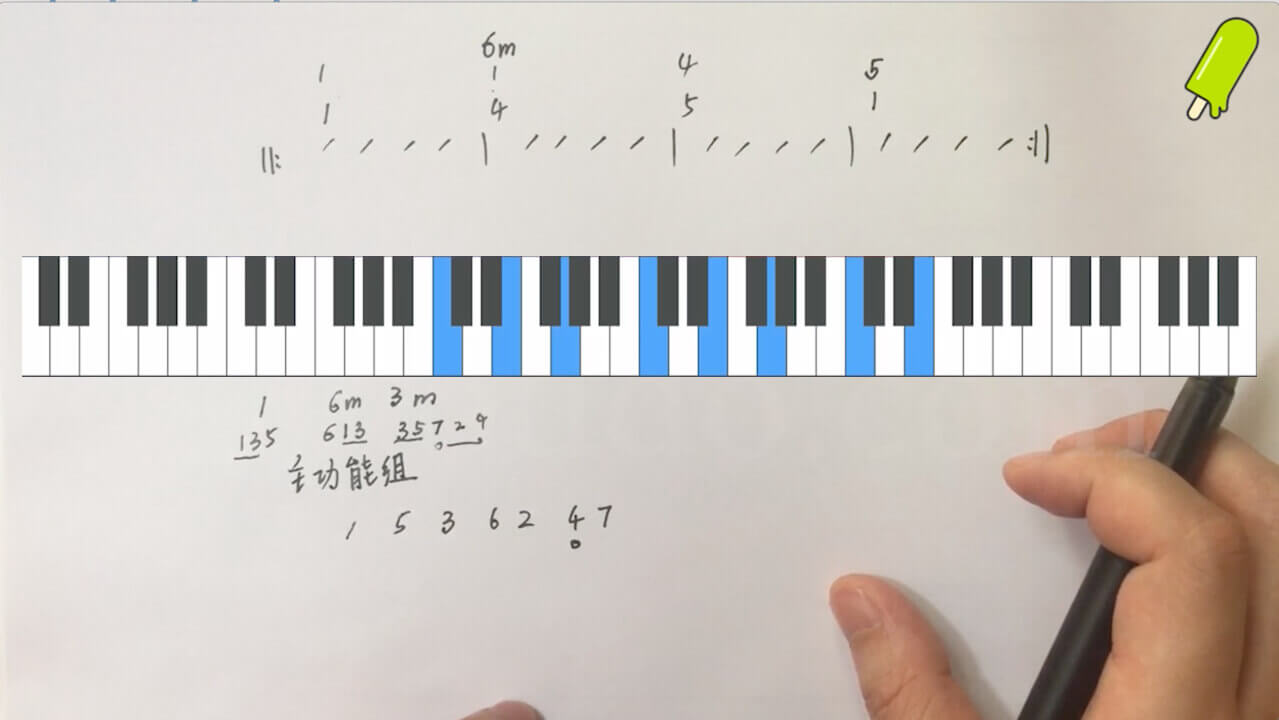 6m 4 5
1 1
1 4 5 1
||: / / / / | / / / / | / / / / | / / / / :||
1 6m 3m
135 613 35724
主功能组
1 5 3 6 2 4 7